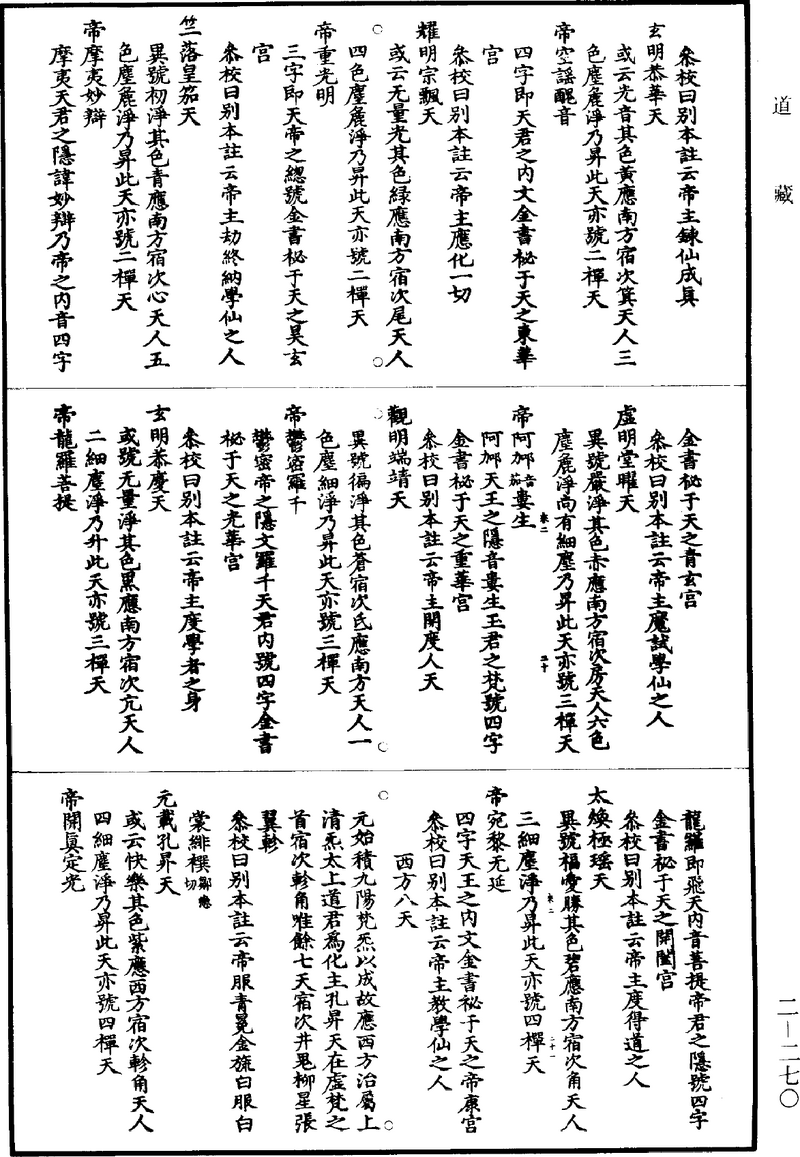 道藏
叅校曰别本註云帝主鍊仙成眞
玄明恭華天
或云光音其色黄應南方宿次箕天人三
色塵麁淨乃昇此天亦號二禪天
帝空謡醜音
四字即天君之内文金書祕于天之東華
宫
叅校曰别本註云帝主應化一切
耀明宗飄天
或云无量光其色緑應南方宿次尾天人
四色塵麁淨乃昇此天亦號二禪天
帝重光明
三字即天帝之緫號金書祕于天之昊玄
宫
叅校曰别本註云帝主劫終納學仙之人
竺落皇笳天
異號初淨其色青應南方宿次心天人五
色塵麁淨乃昇此天亦號二禪天
帝摩夷妙辯
摩夷天君之隱諱妙辯乃帝之内音四字
金書祕于天之青玄宫
叅校曰别本註云帝主魔試學仙之人
虚明堂曜天
異號嚴淨其色赤應南方宿次房天人六色
塵麁淨尚有細塵乃昇此天亦號三禪天
帝阿𨚗音茄婁生
阿𨚗天王之隱音婁生玉君之梵號四字
金書祕于天之重華宫
叅校曰别本註云帝主開度人天
觀明端靖天
異號徧淨其色蒼宿次氐應南方天人一
色塵細淨乃昇此天亦號三禪天
帝鬱密羅千
鬱密帝之隱文羅千天君内號四字金書
祕于天之光華宫
叅校曰别本註云帝主度學者之身
玄明恭慶天
或號无量淨其色黒應南方宿次亢天人
二細塵淨乃升此天亦號三禪天
帝龍羅菩提
龍羅即飛天内音菩提帝君之隱號四字
金書祕于天之開闔宫
叅校曰别本註云帝主度得道之人
太煥極瑶天
異號福愛勝其色碧應南方宿次角天人
三細塵淨乃昇此天亦號四禪天
帝宛黎无延
四字天王之内文金書祕于天之帝康宫
叅校曰别本註云帝主教學仙之人
西方八天
元始積九陽梵炁以成故應西方治屬上
清炁太上道君爲化主孔昇天在虚梵之
首宿次軫角唯餘七天宿次井鬼柳星張
翼軫
叅校曰别本註云帝服青冕金旒白服白
裳緋襈鄒戀切
元載孔昇天
或云快樂其色紫應西方宿次軫角天人
四細塵淨乃昇此天亦號四禪天
帝開眞定光
二－二七〇